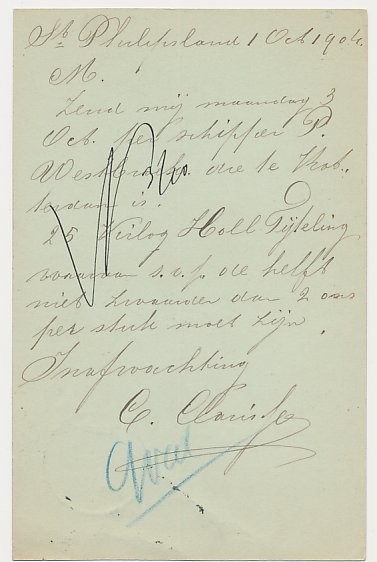 St Philipsland 1 Oct 1904.
M.
Zend mij maandag 3
Oct. per schipper P.
die te Rot-
terdam is.
25 Kilog Holl
waarvan s.v.p. de helft
niet zwaarder dan 2 ons
per stuk moet zijn.
Inafwachting
C.